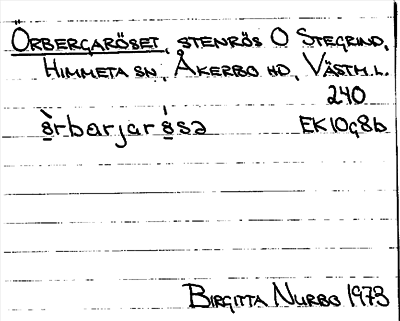 ÖRBERGARÖSET, STENRÖS O STEGRIND,
HIMMETA SN, ÅKERBO HD, VÄSTM.L.
240
EK10g8b
BIRGITTA NURBO 1973